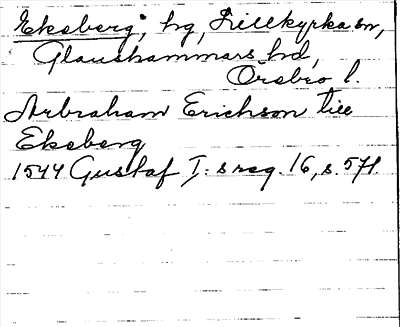 Ekeberg, hg, Lillkyrka sn,
Glanshammars hd,
Örebro l.
Arbraham Erichson till
Ekeberg
1544 Gustaf I: s reg. 16, s. 571.